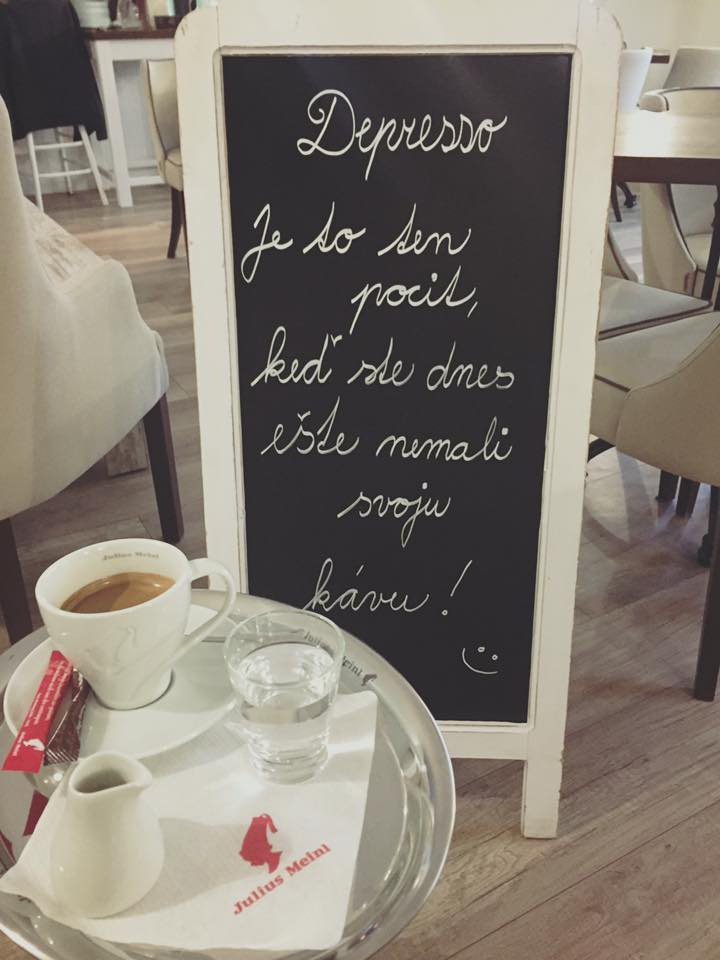 Depresso
Je to ten
pocit,
keď ste dnes
ešte nemali
svoju
kávu!
Julius Meinl
Julius Meinl
Julius Meinl